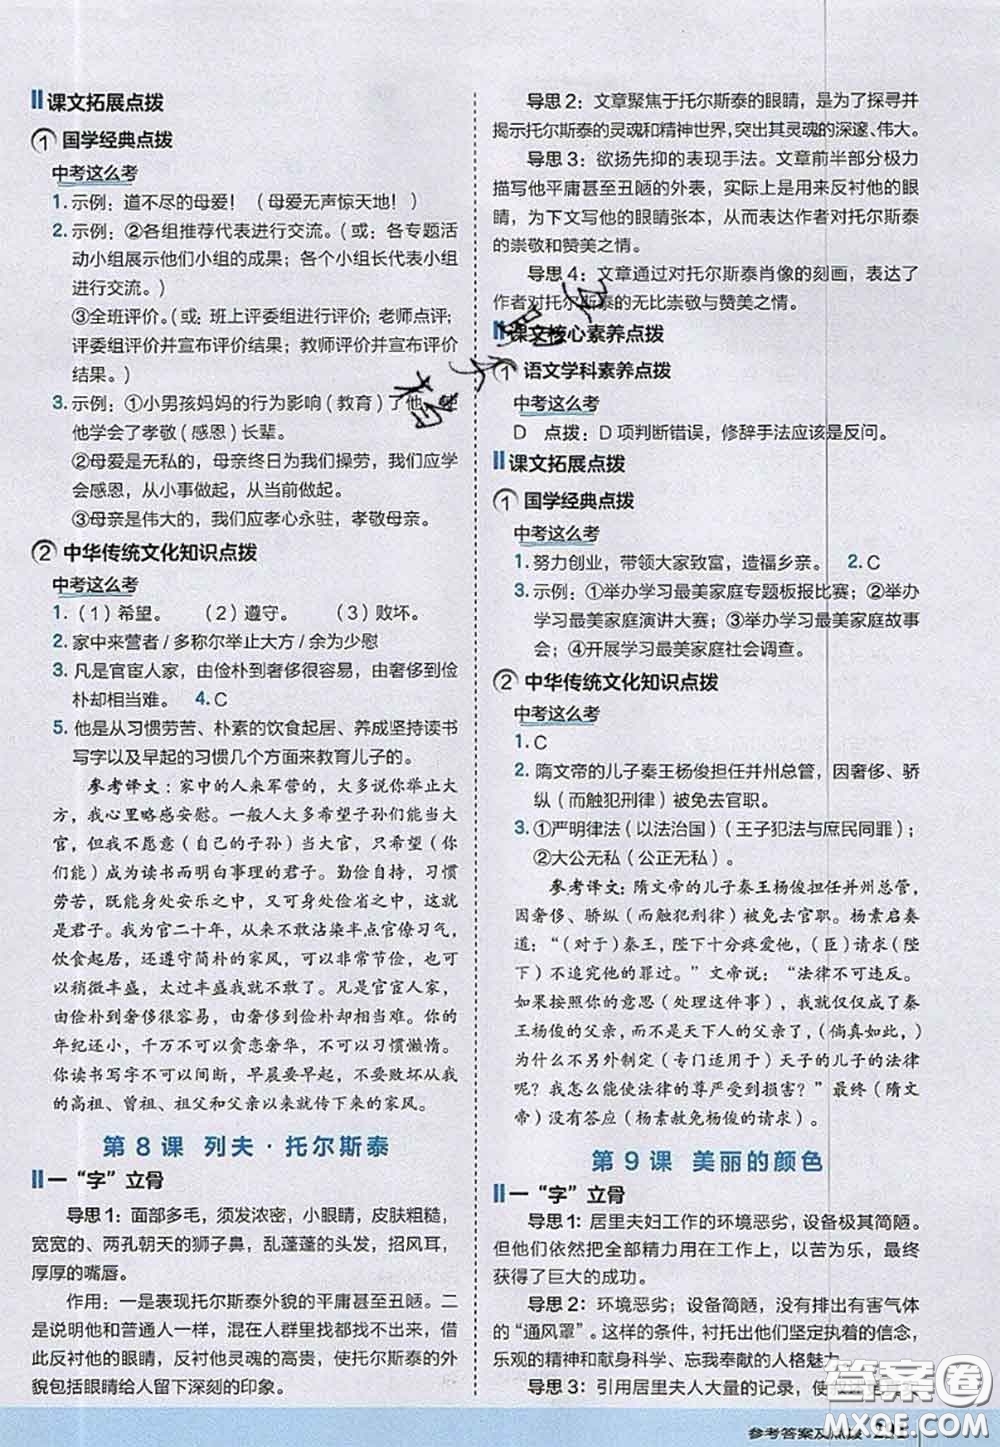 课文拓展点拨
① 国学经典点拨
中考这么考
1. 示例：道不尽的母爱！（母爱无声惊天地！）
2. 示例：②各组推荐代表进行交流。（或：各专题活
动小组展示他们小组的成果；各个小组长代表小组
进行交流。）
③全班评价。（或：班上评委组进行评价；老师点评；
评委组评价并宣布评价结果；教师评价并宣布评价
结果。）
3. 示例：①小男孩妈妈的行为影响（教育）了他，使
他学会了孝敬（感恩）长辈。
②母爱是无私的，母亲终日为我们操劳，我们应学
会感恩，从小事做起，从当前做起。
③母亲是伟大的，我们应孝心永驻，孝敬母亲。
② 中华传统文化知识点拨
中考这么考
1.（1）希望。（2）遵守。（3）败坏。
2. 家中来营者/多称尔举止大方/余为少慰
3. 凡是官宦人家，由俭朴到奢侈很容易，由奢侈到俭
朴却相当难。 4. C
5. 他是从习惯劳苦、朴素的饮食起居、养成坚持读书
写字以及早起的习惯几个方面来教育儿子的。
参考译文：家中的人来军营的，大多说你举止大
方，我心里略感安慰。一般人大多希望子孙们能当大
官，但我不愿意（自己的子孙）当大官，只希望（你
们能）成为读书而明白事理的君子。勤俭自持，习惯
劳苦，既能身处安乐之中，又能身处俭省之中，这
就是君子。我为官二十年，从不敢沾染半点官僚习气，
饮食起居，还遵守简朴的家风，可以非常节俭，也可
以稍微丰盛，太过丰盛我就不敢了。凡是官宦人家，
由俭朴到奢侈很容易，由奢侈到俭朴却相当难。你的
年纪还小，千万不可以贪恋奢华，不可以习惯懒惰。
你读书写字不可以间断，早晨要早起，不要丢掉我们
的高祖、曾祖、祖父和父亲以来就传下来的家风。
第 8 课 列夫·托尔斯泰
一“字”立骨
导思 1：面部多毛，须发浓密，小眼睛，皮肤粗糙，
宽宽的、两孔朝天的狮子鼻，乱蓬蓬的头发，招风耳，
厚厚的嘴唇。
作用：一是表现托尔斯泰外貌的平庸甚至丑陋。二
是说明他和普通人一样，混在人群里找都找不出来，由
此反衬他的眼睛，反衬他灵魂的高贵，使托尔斯泰的外
貌包括眼睛给人留下深刻的印象。
导思 2：文章聚焦于托尔斯泰的眼睛，是为了探寻并
揭示托尔斯泰的灵魂和精神世界，突出其灵魂的深邃、伟大。
导思 3：欲扬先抑的表现手法。文章前半部分极力
描写他平庸甚至丑陋的外表，实际上是用来反衬他的眼
睛，为下文写他的眼睛张本，从而表达作者对托尔斯泰
的崇敬和赞美之情。
导思 4：文章通过对托尔斯泰肖像的刻画，表达了
作者对托尔斯泰的无比崇敬与赞美之情。
课文核心素养点拨
① 语文学科素养点拨
中考这么考
D 点拨：D 项判断错误，修辞手法应该是反问。
课文拓展点拨
① 国学经典点拨
中考这么考
1. 努力创业，带领大家致富，造福乡亲。 2. C
3. 示例：①举办学习最美家庭专题板报比赛；②举
办学习最美家庭演讲大赛；③举办学习最美家庭故事
会；④开展学习最美家庭社会调查。
② 中华传统文化知识点拨
中考这么考
1. C
2. 隋文帝的儿子秦王杨俊担任并州总管，因奢侈、骄
纵（而触犯刑律）被免去官职。
3. ①严明律法（以法治国）（王子犯法与庶民同罪）；
②大公无私（公正无私）。
参考译文：隋文帝的儿子秦王杨俊担任并州总管，
因奢侈、骄纵（而触犯刑律）被免去官职。杨素启奏
道：“（对于）秦王，陛下十分疼爱他，（臣）请求（陛
下）不追究他的罪过。”文帝说：“法律不可违反。
如果按照你的意思（处理这件事），我就仅仅成了秦
王杨俊的父亲，而不是天下人的父亲了，（倘真如此，）
为什么不另外制定（专门适用于）天子的儿子的法律
呢？我怎么能使法律的尊严受到损害？”最终（隋文
帝）没有答应（杨素赦免杨俊的请求）。
第 9 课 美丽的颜色
一“字”立骨
导思 1：居里夫妇工作的环境恶劣，设备极其简陋。
但他们依然把全部精力用在工作上，以苦为乐，最终
获得了巨大的成功。
导思 2：环境恶劣；设备简陋，没有排出有害气体
的“通风罩”。这样的条件，衬托出他们坚定执着的信念，
乐观的精神和献身科学、忘我奉献的人格魅力。
导思 3：引用居里夫人大量的记录，使
参考答案及点拨
答案圈
MXQE.COM